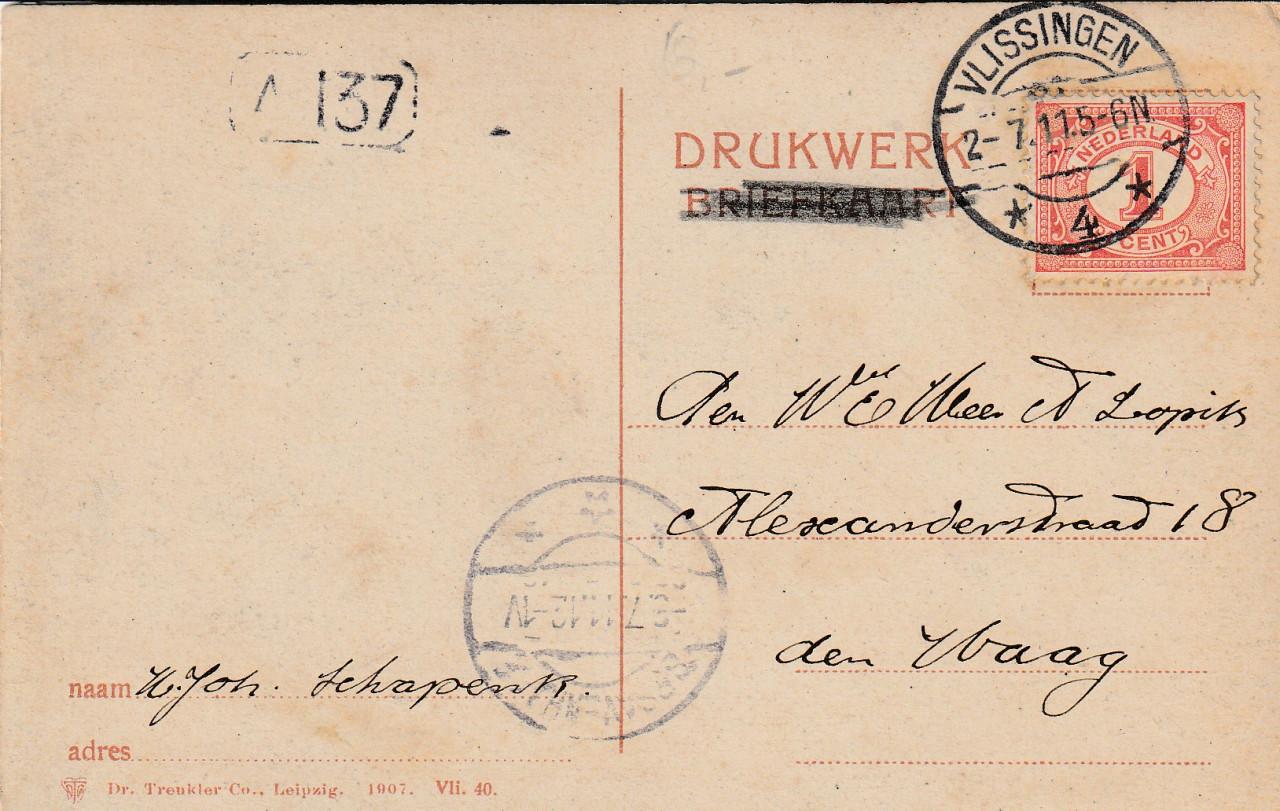 A 137
VLISSINGEN
2-7.11.5-6N
4
NEDERLAND
1
CENT
DRUKWERK
BRIEFKAART
Den W E Heer A Lopik
Alexanderstraat 18
den Haag
7.11.12-1V
naam H. Joh. Schapenk.
adres
Dr. Trenkler Co., Leipzig. 1907. Vli. 40.